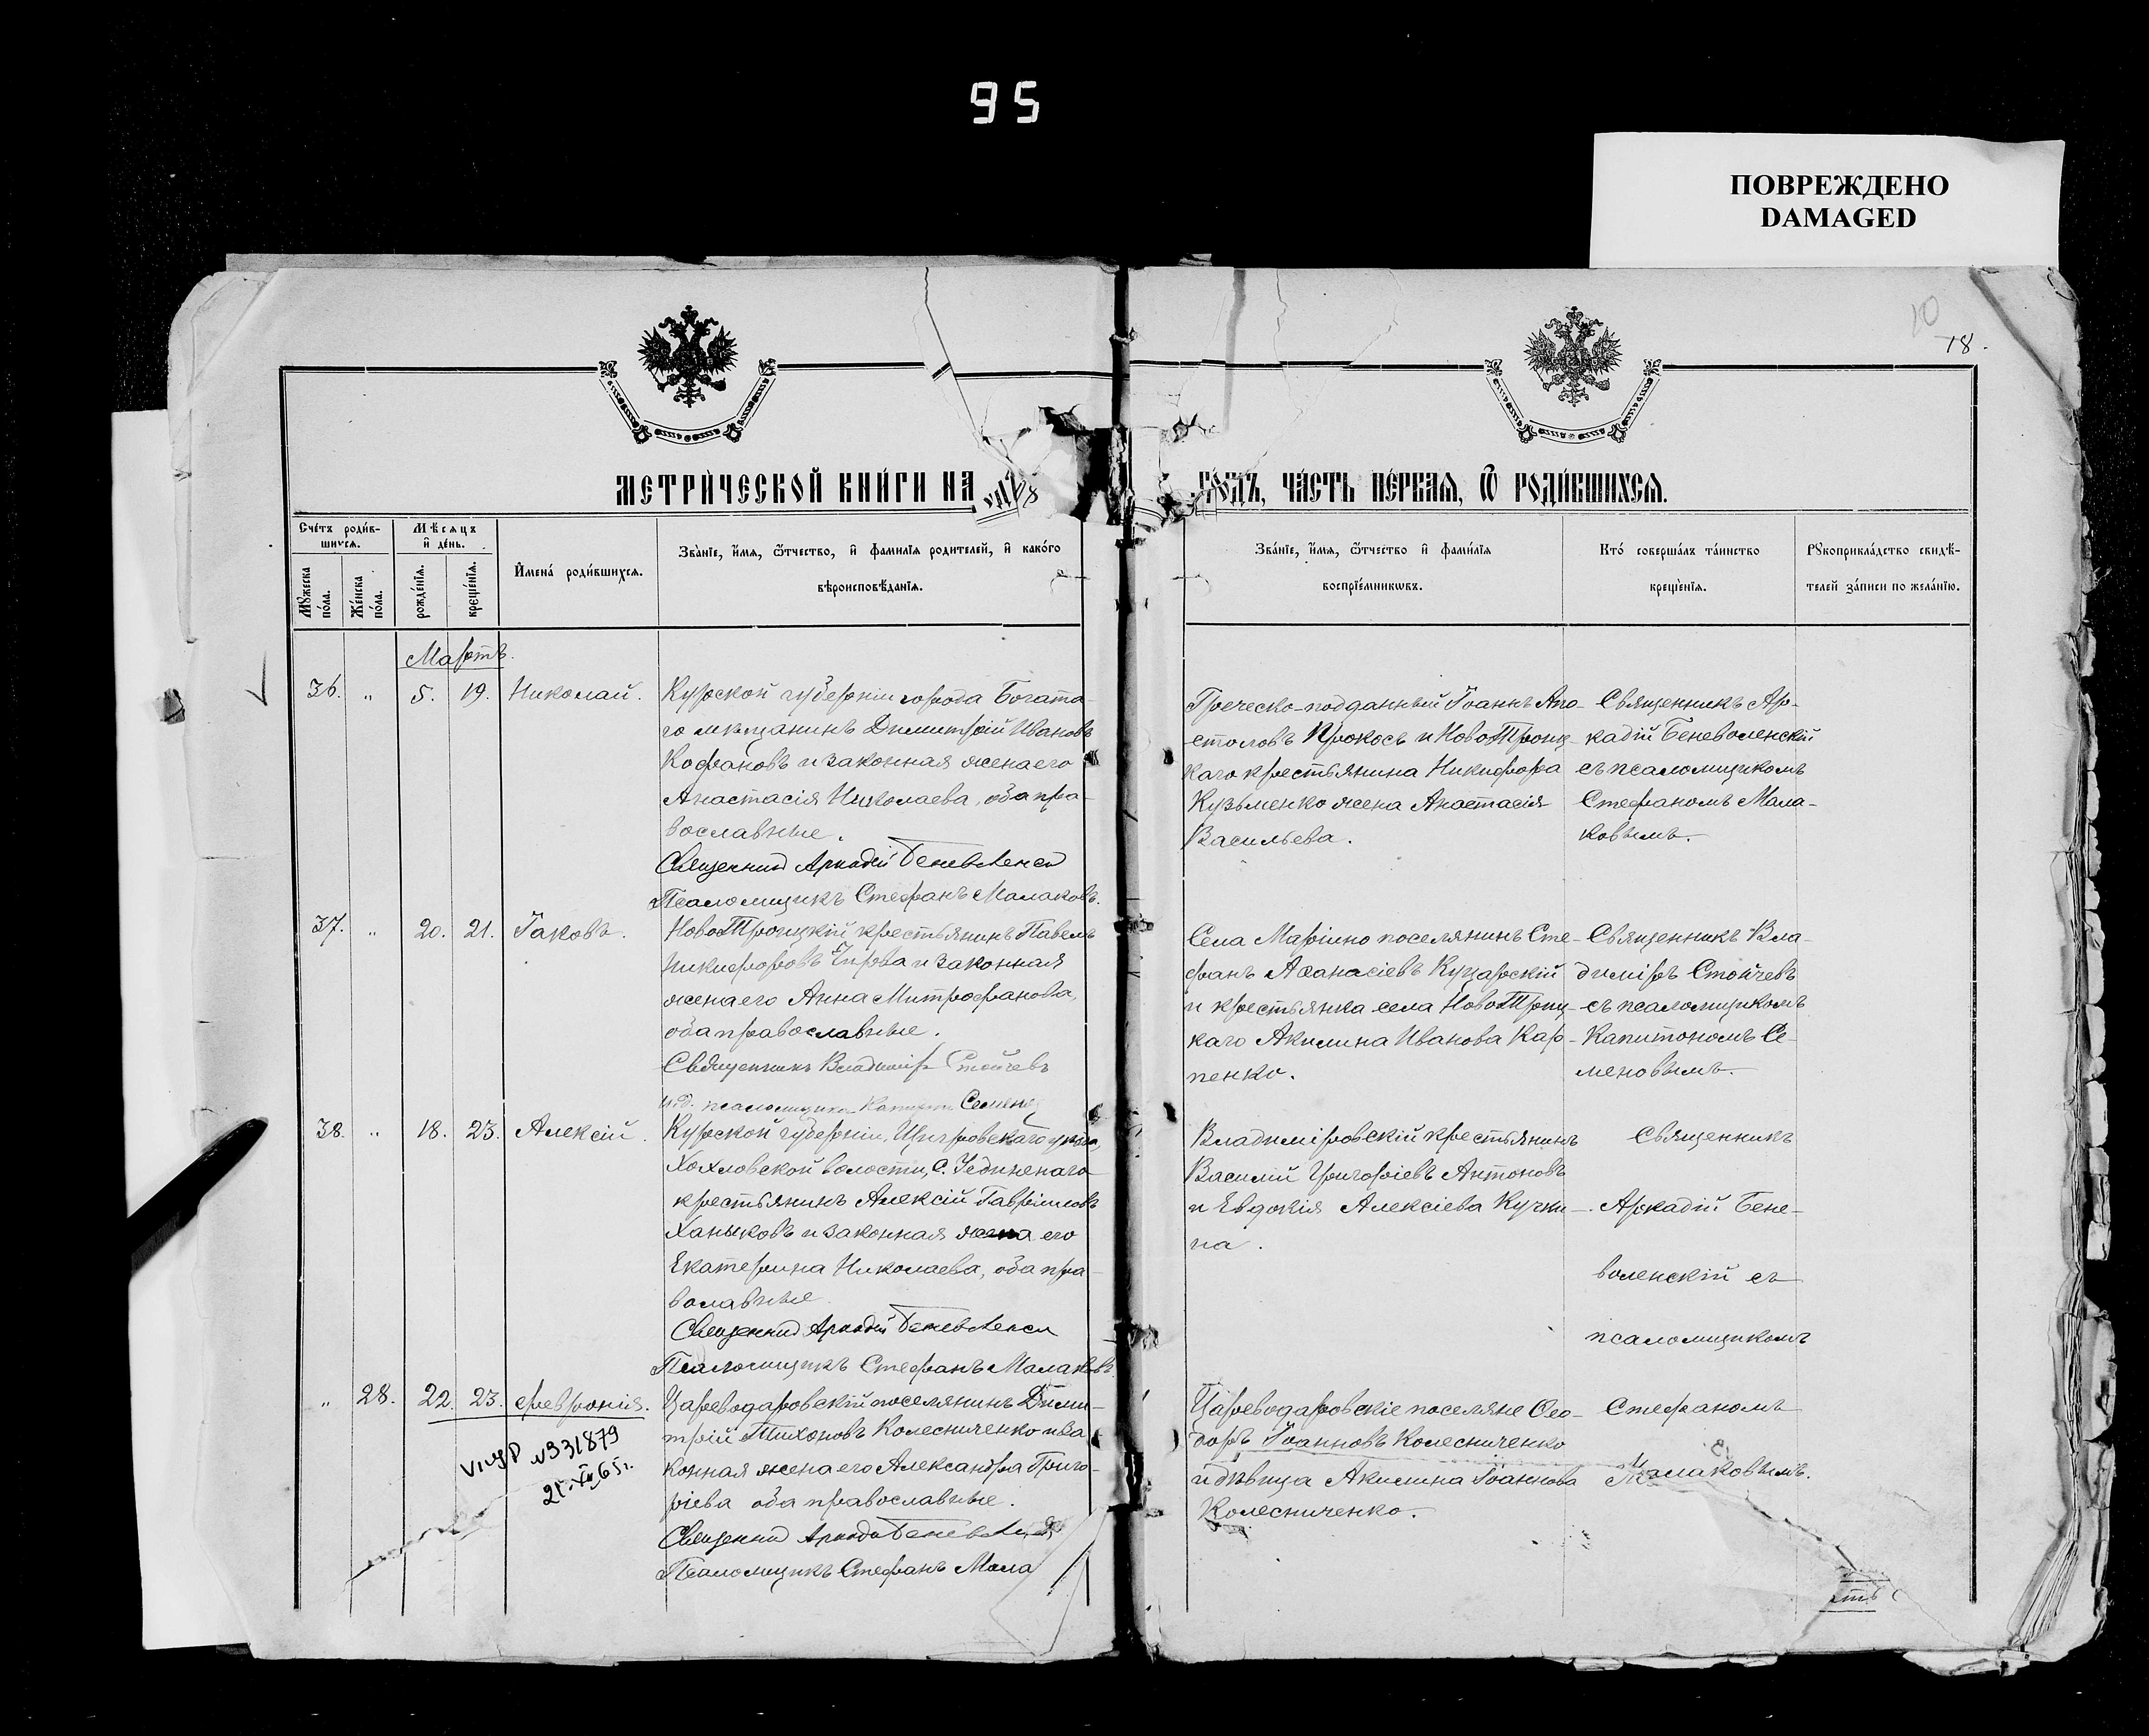 95
ПОВРЕЖДЕНО
DAMAGED
10
18.
МЕТРИЧЕСКОЙ КНИГИ НА
ГОДЪ, ЧАСТЬ ПЕРВАЯ, Ѿ РОДИВШИХСЯ.
Счетъ родившихся.
Мѣсяцъ и день.
Имена родившихся.
Званіе, имя, ѿтчество, и фамилія родителей, и какого вѣроисповѣданія.
Званіе, имя, ѿтчество и фамилія воспріемниковъ.
Кто совершалъ таинство крещенія.
Рукоприкладство свидѣтелей записи по желанію.
Мужеска пола.
Женска пола.
рожденія.
крещенія.
Мартъ.
36. „ 5. 19. Николай.
Курской губерніи города Богата-
го мѣщанинъ Димитрій Ивановъ
Кофановъ и законная жена его
Анастасія Николаева, оба пра-
вославные.
Священникъ Аркадій Беневоленскій
Псаломщикъ Стефанъ Малаковъ.
Греческо-подданный Іоаннъ Апо-
столовъ Прокосъ и НовоТроиц-
каго крестьянина Никифора
Кузьменко жена Анастасія
Васильева.
Священникъ Ар-
кадій Беневоленскій
съ псаломщикомъ
Стефаномъ Мала-
ковымъ.
37. „ 20. 21. Іаковъ.
НовоТроицкій крестьянинъ Павелъ
Никифоровъ Чирва и законная
жена его Анна Митрофанова,
оба православные.
Священникъ Владиміръ Стойчевъ
и.д. псаломщика Капитонъ Семеновъ
Села Маріино поселянинъ Сте-
фанъ Аѳанасіевъ Куцарскій
и крестьянка села НовоТроиц-
каго Акилина Иванова Кар-
пенко.
Священникъ Вла-
диміръ Стойчевъ
съ псаломщикомъ
Капитономъ Се-
меновымъ.
38. „ 18. 23. Алексій.
Курской губерніи, Щигровскаго уѣзда,
Хохловской волости, с. Уединенаго
крестьянинъ Алексій Гавріиловъ
Ханыковъ и законная жена его
Екатерина Николаева, оба пра-
вославные
Священникъ Аркадій Беневоленскій
Псаломщикъ Стефанъ Малаковъ.
Владиміровскій крестьянинъ
Василій Григоріевъ Антоновъ
и Евдокія Алексіева Кучки-
на.
Священникъ
Аркадій Бене-
воленскій съ
псаломщикомъ
Стефаномъ
Малаковымъ.
„ 28. 22. 23. Февронія.
Цареводаровскій поселянинъ Дими-
трій Тихоновъ Колесниченко и за
конная жена его Александра Григо-
ріева оба православные.
Священникъ Аркадій Беневоленскій
Псаломщикъ Стефанъ Мала
Цареводаровскіе поселяне Ѳео-
доръ Іоанновъ Колесниченко
и дѣвица Акилина Іоаннова
Колесниченко.
№331879
65г.
сть